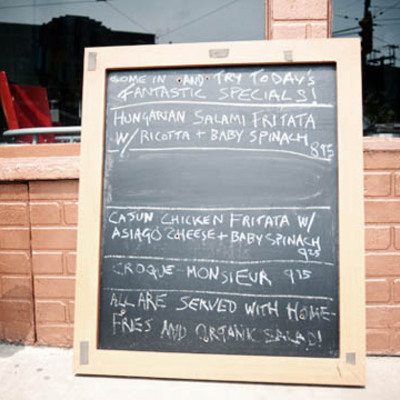 COME IN AND TRY TODAY'S
FANTASTIC SPECIALS!
HUNGARIAN SALAMI FRITATA
W/ RICOTTA + BABY SPINACH
895
CAJUN CHICKEN FRITATA W/
ASIAGO CHEESE + BABY SPINACH
925
CROQUE MONSIEUR 925
ALL ARE SERVED WITH HOME-
FRIES AND ORGANIC SALAD!